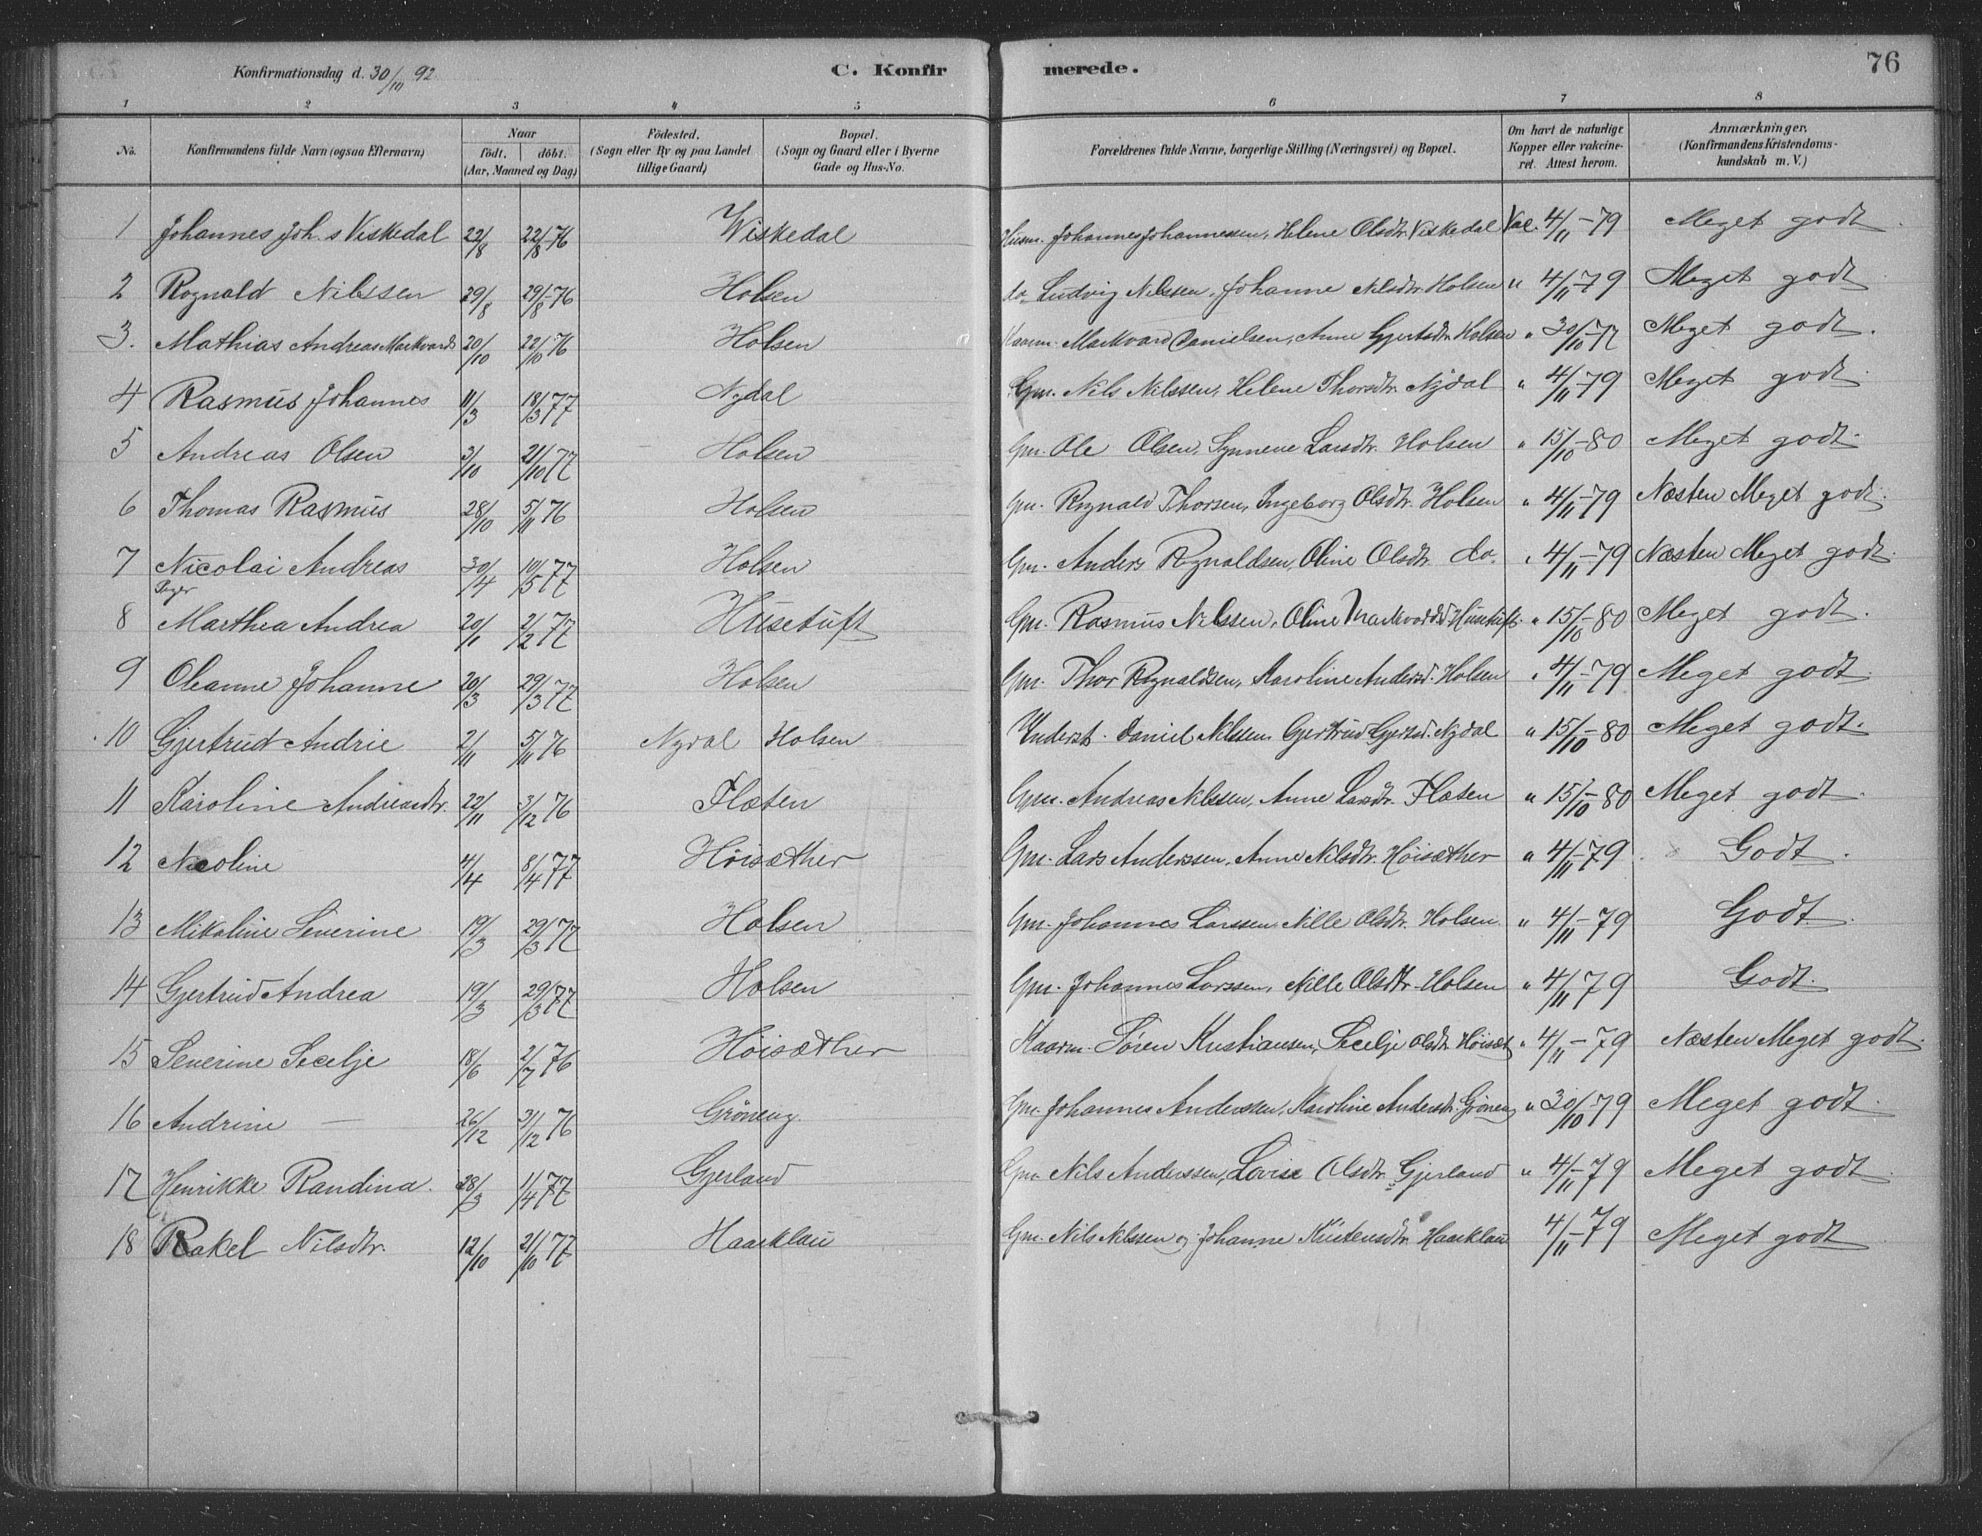 Konfirmationsdag d. 30/10 92.
C. Konfirmerede.
76
1 2 3 4 5 6 7 8
No. Konfirmandens fulde Navn (ogsaa Efternavn) Naar födt. döbt. (Aar, Maaned og Dag) Födested. (Sogn eller By og paa Landet tillige Gaard) Bopæl. (Sogn og Gaard eller i Byerne Gade og Hus-No. Forældrenes fulde Navne, borgerlige Stilling (Næringsvei) og Bopæl. Om havt de naturlige Kopper eller vakcineret. Attest herom. Anmærkninger. (Konfirmandens Kristendomskundskab m. V.)
1 Johannes Joh.s Viskedal 22/8 22/8-76 Wiskedal Husm. Johannes Johannessen, Helene Olsdtr. Viskedal Vac. 4/11-79 Meget godt.
2 Rognald Nilssen 29/8 29/8-76 Holsen do Ludvig Nilssen, Johanne Nilsdtr Holsen " 4/11-79 Meget godt
3. Mathias Andreas Markvards 20/10 22/10 76 Holsen Kaarm. Markvard Danielsen, Anne Gjertsdtr Holsen " 30/10-77 Meget godt.
4 Rasmus Johannes 11/3 18/3 77 Nydal Gm. Nils Nilssen, Helene Thorsdtr. Nydal " 4/11-79 Meget godt.
5 Andreas Olsen 3/10 21/10 77 Holsen Gm. Ole Olsen, Synneve Larsdtr. Holsen " 15/10-80 Meget godt.
6 Thomas Rasmus 28/10 5/11 76 Holsen Gm. Rognald Thorsen, Ingeborg Olsdtr. Holsen " 4/11-79 Næsten Meget godt.
7 Nicolai Andreas 30/4 10/5 77 Holsen Gm. Anders Rognaldsen, Oline Olsdtr. do. " 4/11-79 Næsten Meget godt.
Piger
8 Marthea Andrea 20/1 2/2 77 Husetuft Gm. Rasmus Nilssen, Oline Markvardsd Husetuft. " 15/10-80 Meget godt.
9 Oleanne Johanne 20/3 29/3 77 Holsen Gm. Thor Rognaldsen, Karoline Andersd. Holsen " 4/11-79 Meget godt.
10 Gjertrud Andrie 2/11 5/11 76 Nydal Holsen Underst. Daniel Nilssen, Gjertrud Gjertsd. Nydal " 15/10-80 Meget godt.
11 Karoline Andreasdtr. 22/11 3/12 76 Flaten Gm. Andreas Nilssen, Anne Larsdtr. Flaten " 15/10-80 Meget godt.
12 Nicoline 4/4 8/4 77 Höisæther Gm. Lars Anderssen, Anne Nilsdtr. Höisæther " 4/11-79 Godt.
13 Mikaline Severine 19/3 29/3 77 Holsen Gm. Johannes Larssen, Nille Olsdtr. Holsen " 4/11-79 Godt.
14 Gjertrud Andrea 19/3 29/3 77 Holsen Gm. Johannes Larssen, Nille Olsdtr. Holsen " 4/11 79 Godt.
15 Severine Secelje 18/6 2/7 76 Höisæther Kaarm. Sören Kristiansen, Secelje Olsdtr Höisæt " 4/11-79 Næsten Meget godt.
16 Andrine — 26/12 31/12 76 Gröneng. Gm. Johannes Anderssen, Karoline Andersdtr. Gröneng " 30/10-79 Meget godt.
17 Henrikke Randina. 28/3 1/4 77 Gjerland Gm. Nils Anderssen, Lovise Olsdtr. Gjerland " 4/11-79 Meget godt.
18 Rakel Nilsdtr. 12/10 21/10 77 Haarklau Gm. Nils Nilssen og Johanne Kristensdtr. Haarklau 4/11-79 Meget godt